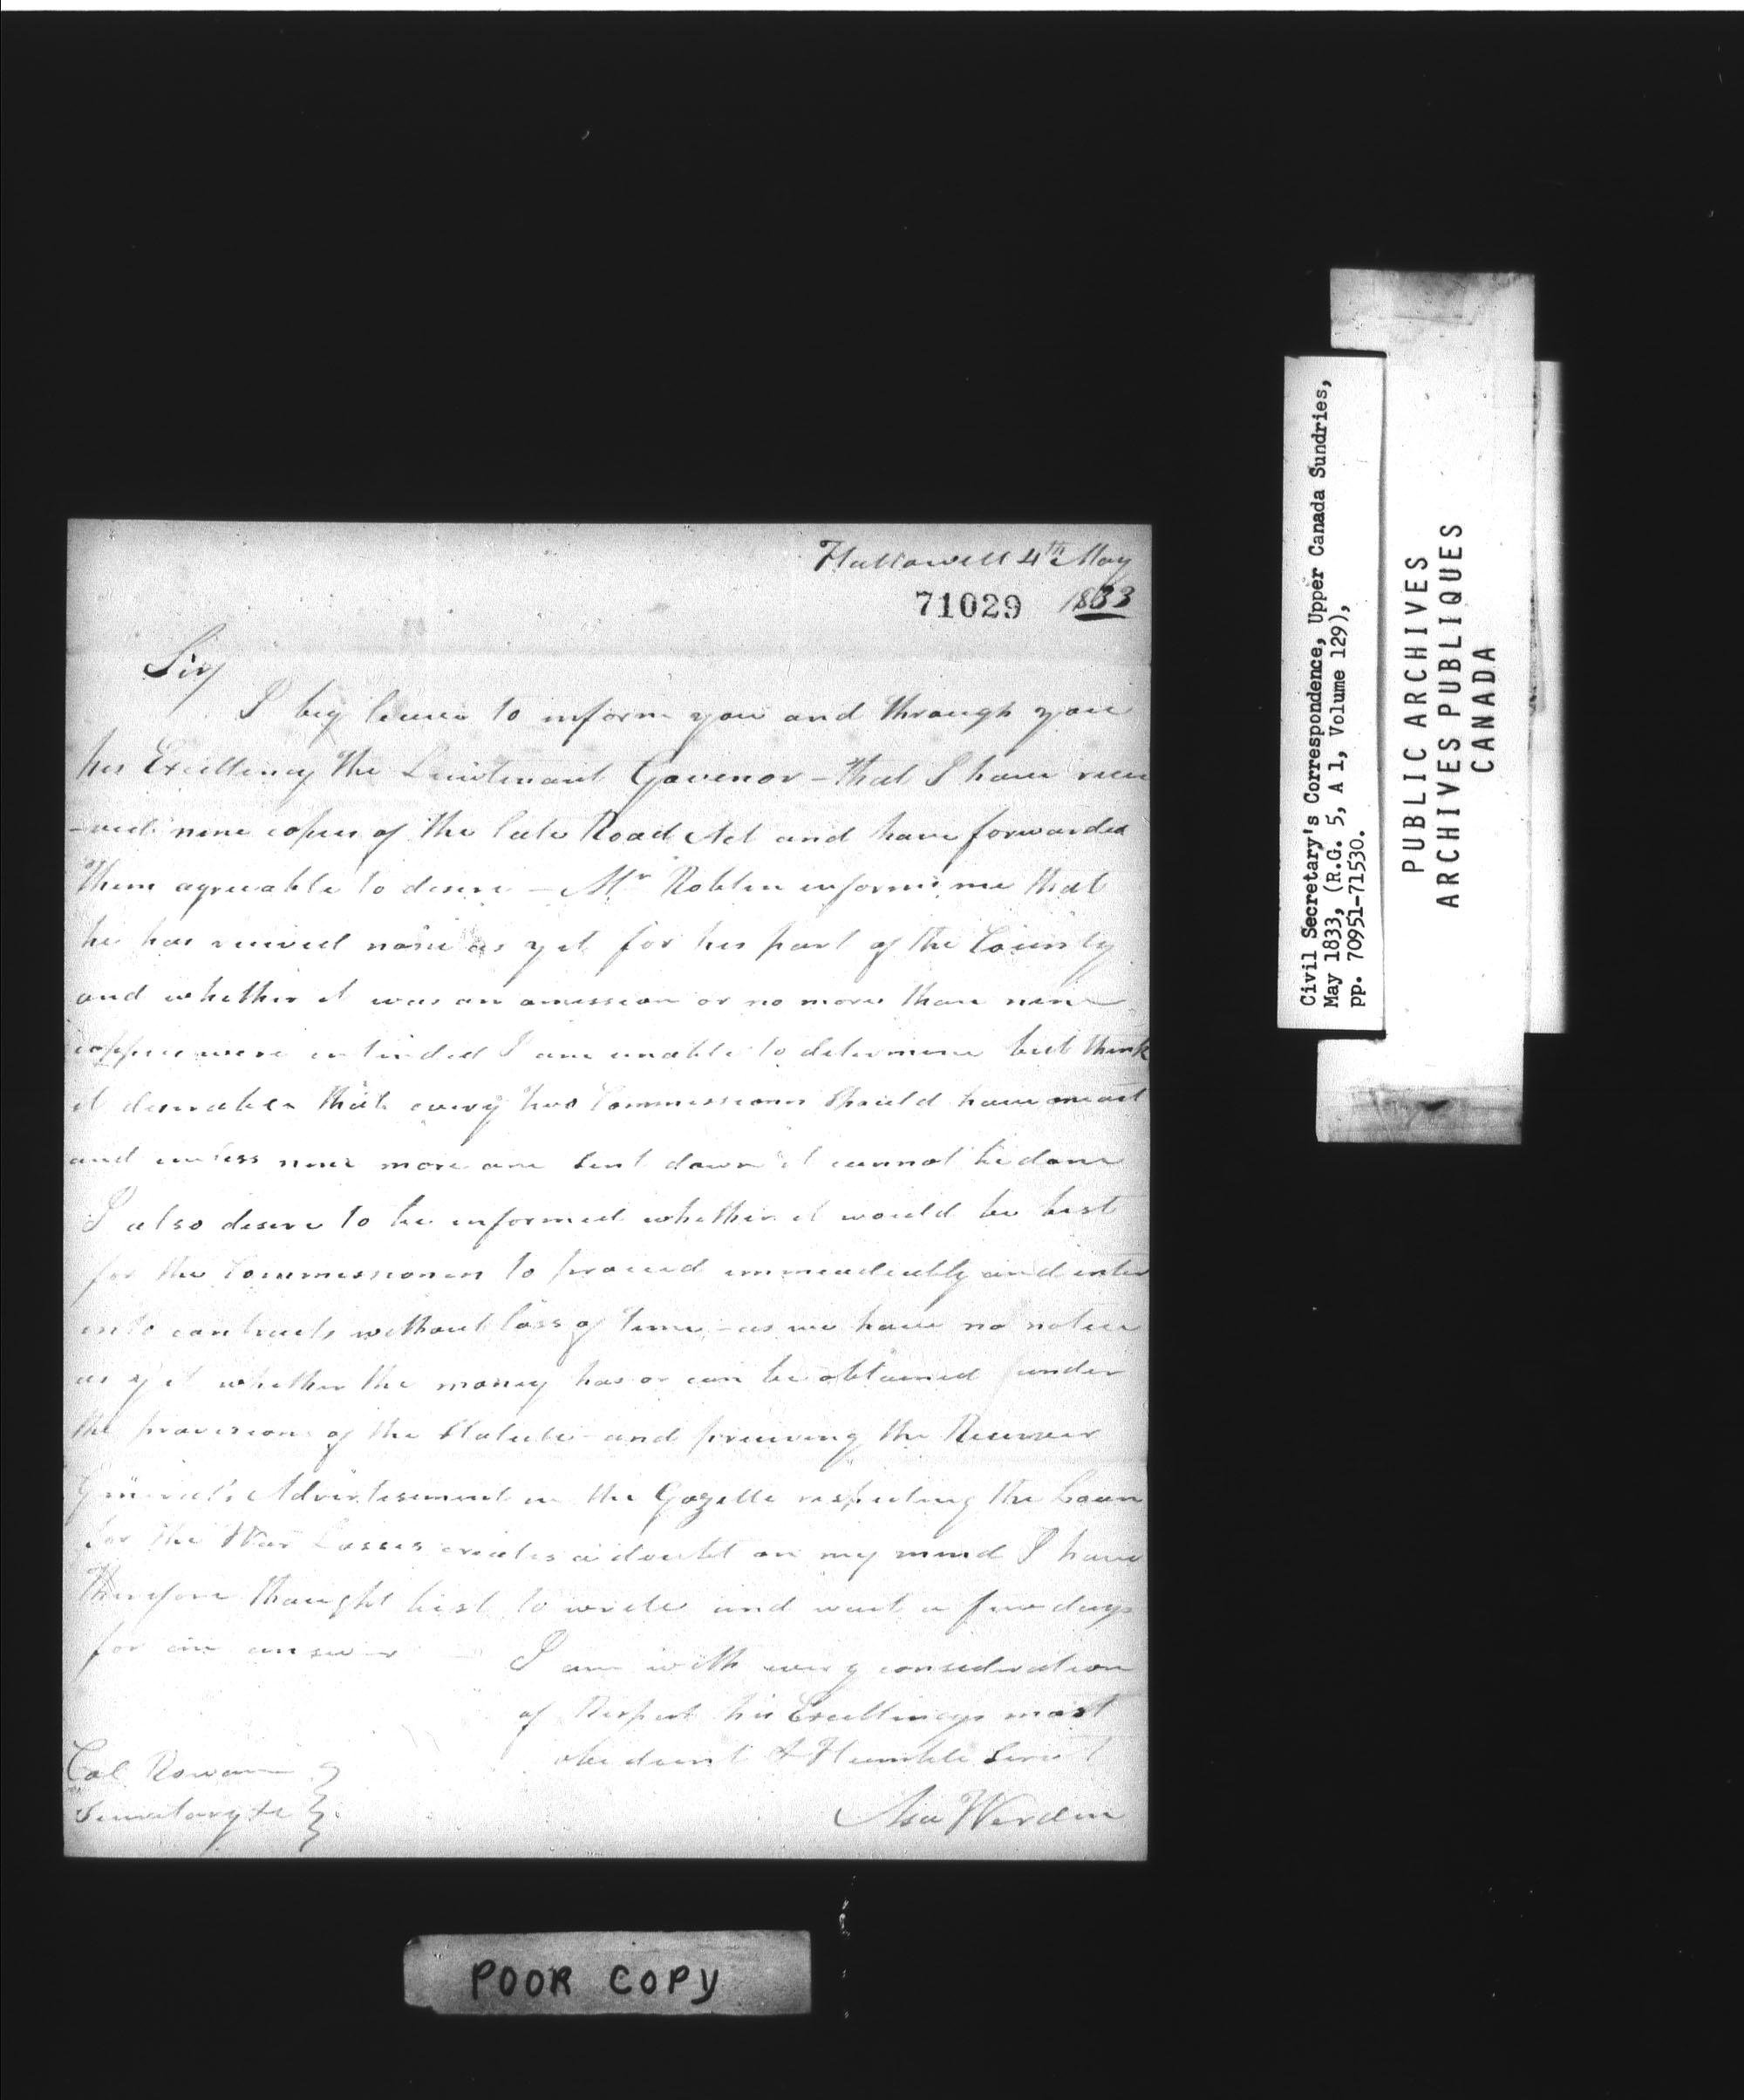 Hallowell 4th May
71029 1833
Sir
I beg leave to inform you and through you
his Excellency the Lieutenant Govenor - that I have recei
-ved nine copies of the late Road Act and have forwarded
them agreeable to desire - Mr Roblin informs me that
he has received none as yet for his part of the County
and whether it was an omission or no more than nine
coppies were intended I am unable to determine but think
it desirable that every two Commissioners should have one act
and unless nine more are sent down it cannot be done
I also desire to be informed whether it would be best
for the Commissioners to proceed immeadiately and enter
into contracts without loss of time - as we have no notice
as yet whether the money has or can be obtained under
the provisions of the Statute and the Receiver
General's Advertisement in the Gazette respecting the Loan
for the War Losses creates a doubt on my mind I have
therefore thought best to write and wait a few days
for an answer
I am with every consideration
of Respect his Excellencys most
obedient & Humble Servt
Asa Werden
Col Rowan
Secretary &c
POOR COPY
Civil Secretary's Correspondence, Upper Canada Sundries,
May 1833, (R.G. 5, A 1, Volume 129),
pp. 70951-71530.
PUBLIC ARCHIVES
ARCHIVES PUBLIQUES
CANADA